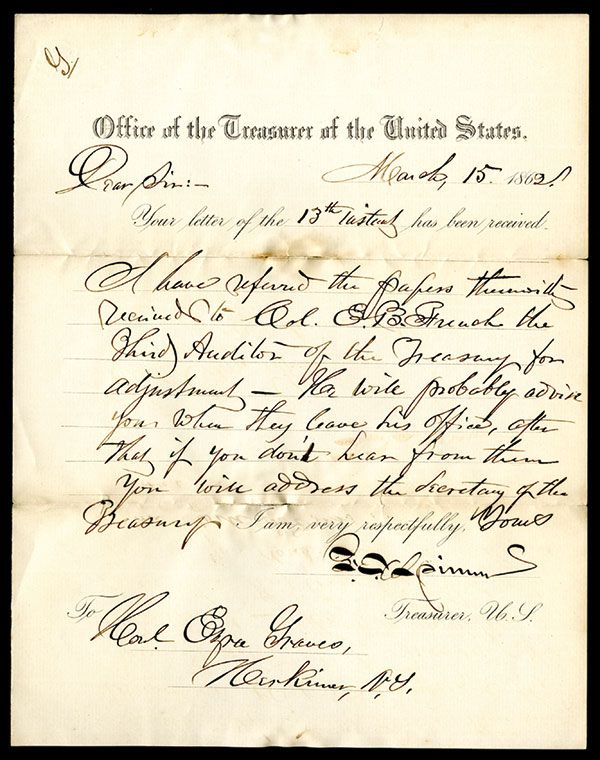 Office of the Treasurer of the United States.
Dear Sir:- March, 15. 1862.
Your letter of the 13th instant has been received.
I have referred the papers therewith
received to Col. E. B. French the
Third Auditor of the Treasury for
adjustment — He will probably advise
you when they leave his office, after
that if you don't hear from them
You will address the Secretary of the
Treasury I am, very respectfully, Yours
F. E. Spinner
Treasurer, U.S.
To
Hon. Ezra Graves,
Herkimer, N.Y.